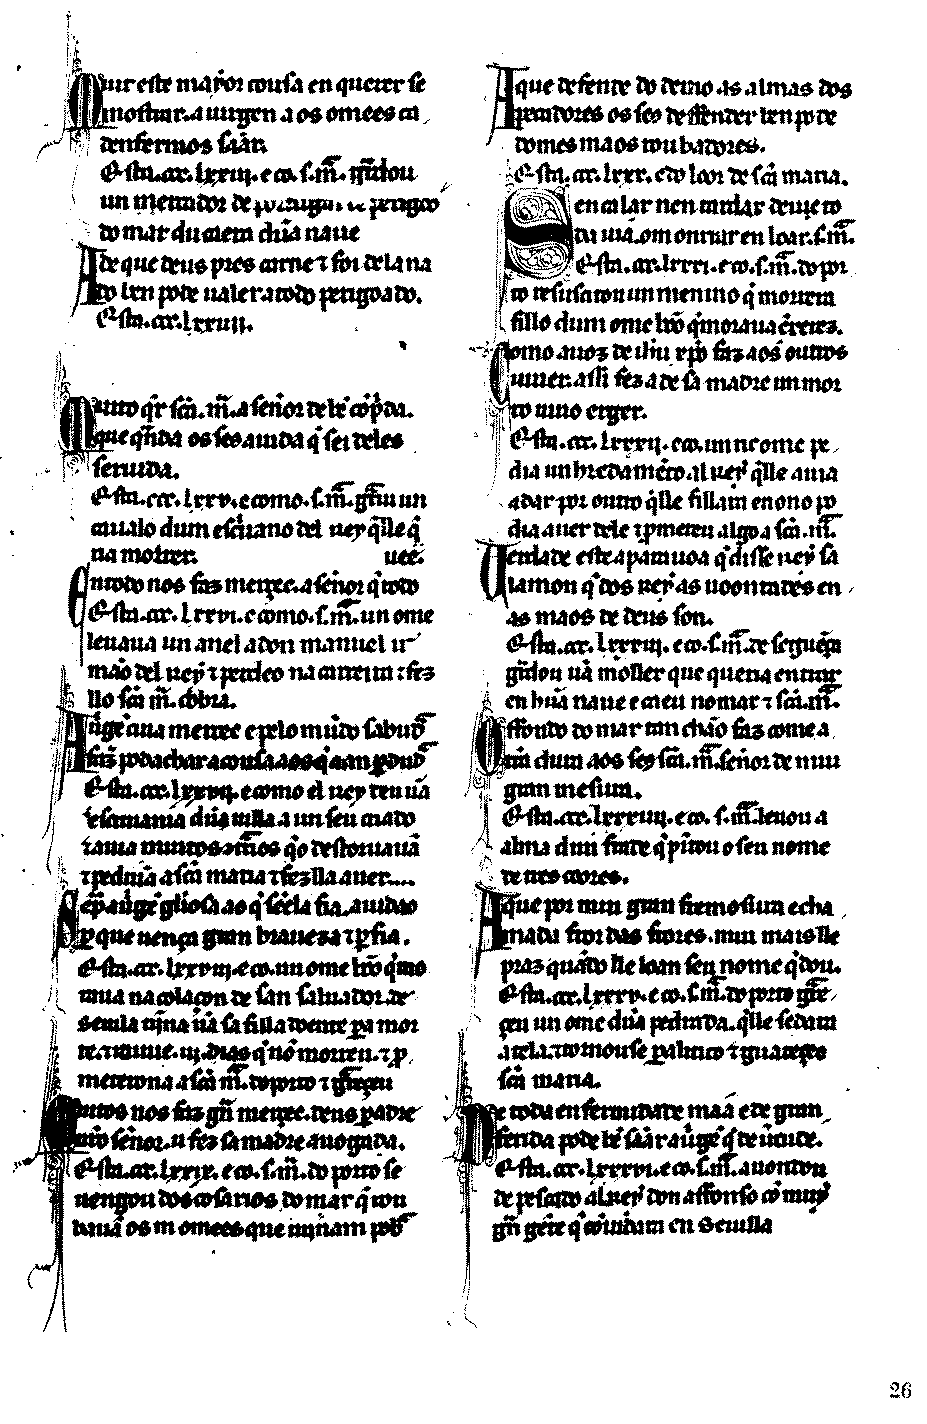 Mui este mayor cousa en querer se
mostrar. a uirgen a os omees ca
denfermos sãar.
Esta. ccc. lxxiij. e co. s. m̃. gũdou
un mercador de portugal de perigoo
do mar du caera dũa naue
A de que deus pres carne ⁊ foi dela na
do ben pode ualer. a todo perigoado.
Esta. ccc. lxxiiij.
Muito q̇r sc̃a. m̃. a señor de bẽ cõp̃da.
que q̃nda os seos aiuda q̇ sei deles
seruida.
Esta. ccc. lxxv. e como. s. m̃. guariu un
caualo dum escriuano del rey q̇lle q̇
na morrer.
uee.
En todo nos faz merçee. a señor q̇ todo
Esta. ccc. lxxvi. e como. s. m̃. un ome
leuaua un anel a don manuel ir
mão del rey ⁊ perdeo na carreira ⁊ fez
llo sc̃a m̃. cobrar.
A uirgẽ
Esta. ccc. lxxvij. e como el rey deu ũa
dũa uilla a un seu criado
⁊ auia muitos q̇o destoruauã
⁊ pediuã a sc̃a maria ⁊ fezlla auer....
p̃ que uença gran braueza ⁊ p̃fia.
Esta. ccc. lxxviij. e co. un ome bõo q̇ mo
raua na colaçon de san saluador. de
seuilla tijna ũa sa filla doente p̱a mor
te. iij. dias q̇ nõ morreu. ⁊ p̱
meterona a sc̃a m̃. do porto ⁊ guareçeu
Tantos nos faz gr̃n merçee. deus padre
nostro señor. u fez sa madre auogada.
Esta. ccc. lxxix. e co. s. m̃. do porto se
uengou dos cosarios do mar q̇ rou
bauã os omees que uijnam pob̃
A que defende do demo as almas dos
pecadores os seos deffender ben pode
domes maos roubadores.
Esta. ccc. lxxx. e do loor de sc̃a maria.
Sen calar nen tardar deuje to
da uia. om onrrar en loar. s. m̃.
Esta. ccc. lxxxi. e co. s. m̃. do por
to resusciton un menino q̇ morrera
fillo dum ome bõo q̇ moraua ẽ xerez.
Como a uoz de ih̃u xp̃o faz aos outros
uiuer. assi fez a de sa madre un mor
to uiuo erger.
Esta. ccc. lxxxij. e co. un ric ome pe
dia un herdamẽto. al rey q̇lle auia
a dar por outro q̇lle fillara e nono po
dia auer dele ⁊ p̱meteu algo a sc̃a. m̃.
Uerdade este a parauoa q̇ disse rey sa
lamon q̇ dos reys as uoontades en
as maos de deus son.
Esta. ccc. lxxxiij. e co. s. m̃. de segueça
gũdou ũa moller que queria entrar
en hũa naue e caeu no mar ⁊ sc̃a. m̃.
O ffondo do mar tan chão faz come a
terra dura aos seus sc̃a. m̃. señor de mui
gran mesura.
Esta. ccc. lxxxiiij. e co. s. m̃. leuou a
alma dun frade q̇ pintou o seu nome
de tres coores.
A que por mui gran fremosura e cha
mada fror das frores. mui mais lle
praz quãdo lle loan seu nome q̇ dou.
Esta. ccc. lxxxv. e co. s. m̃. do porto gũe
çeu un ome dũa pedrada. q̇lle sedara
sc̃a maria.
De toda enfermidade maa e de gran
ferida pode bẽ sãar a uirgẽ q̇ de uertude.
Esta. ccc. lxxxvi. e co. s. m̃. auondou
de pescado al rey don affonso cõ muy
gr̃n gẽte q̇ cõuidara en Seuilla
26